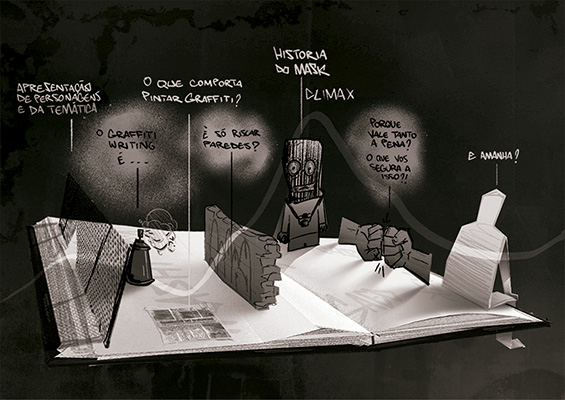 APRESENTAÇÃO
DE PERSONAGENS
E DA TEMÁTICA
O GRAFFITI
WRITING
É ...
O QUE COMPORTA
PINTAR GRAFFITI?
É SÓ RISCAR
PAREDES?
HISTORIA
DO MASK
CLIMAX
PORQUE
VALE TANTO
A PENA?
O QUE VOS
SEGURA A
ISSO?!
E AMANHA?